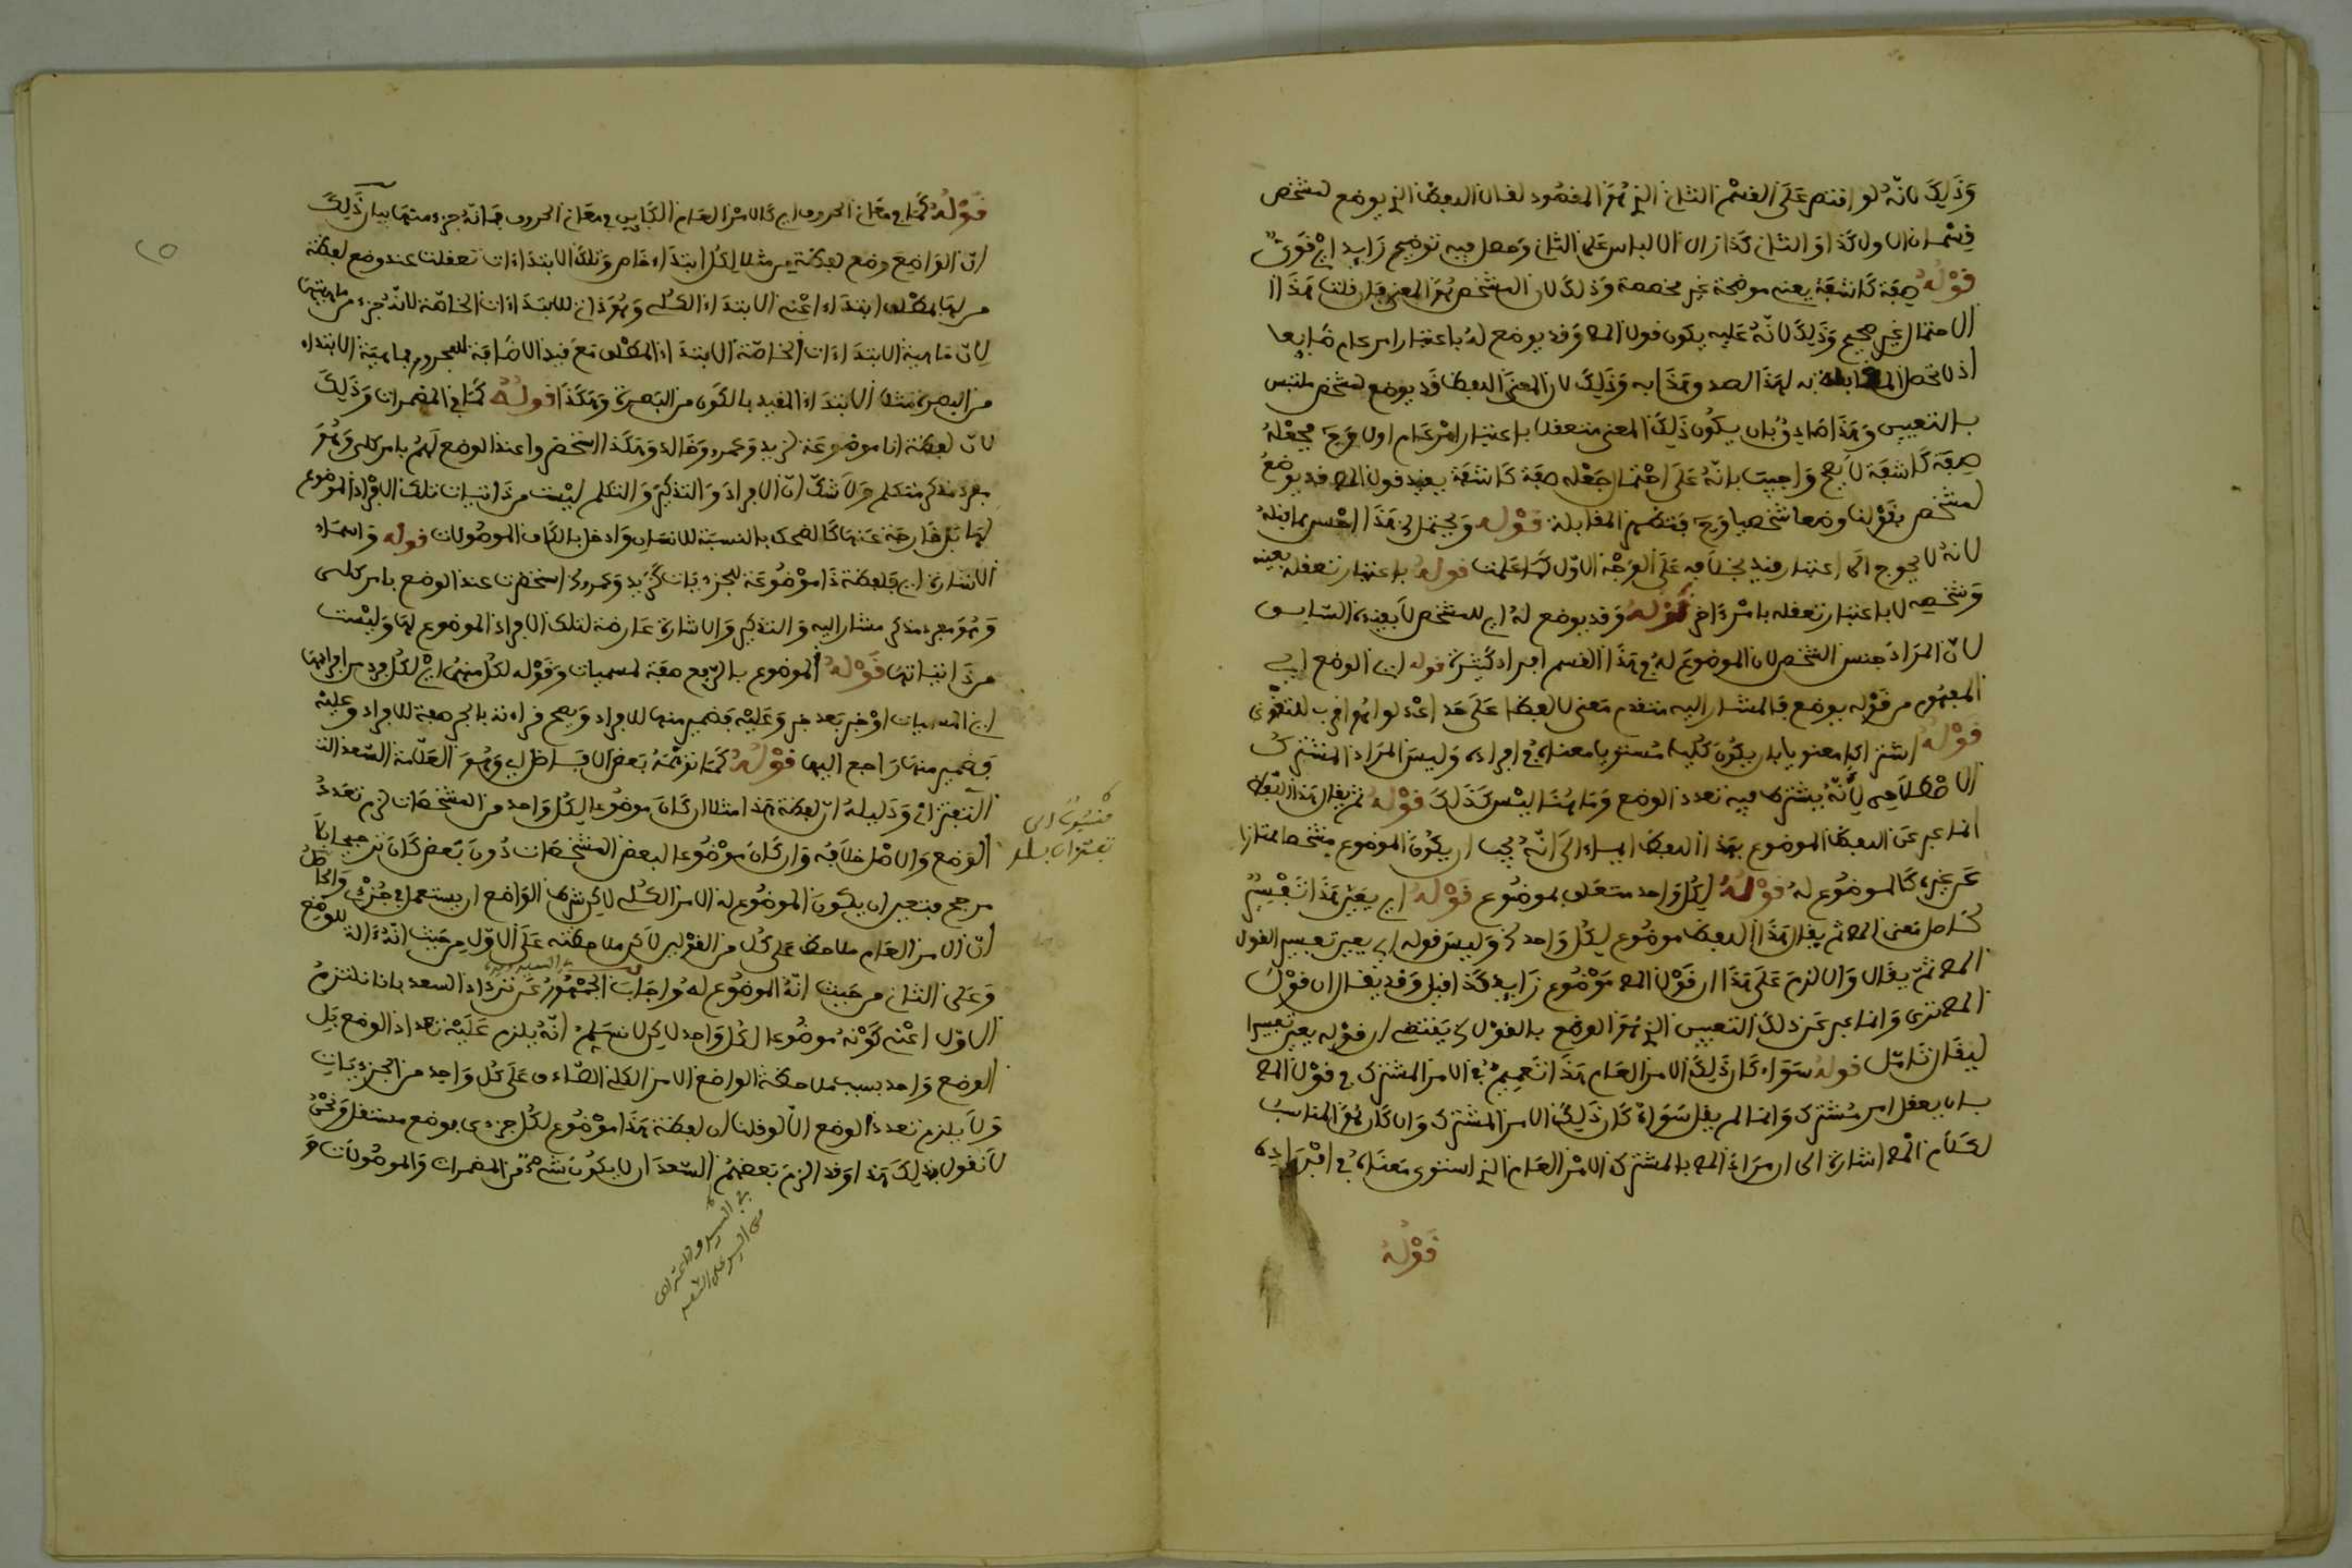 وذلك لانه لو اقتصر على القسم الثاني الذي هو المقصود لقال اللفظ الذي يوضع لمشخص
قسمان الاول كذا والثاني كذا زال الالباس على الثاني وحصل فيه توضيح زايد اي قوي
قوله صفة كاشفة يعني موضحة غير مخصصة وذلك لان المشخص هو المعنى فان قلت هذا
الاحتمال غير صحيح وذلك لانه عليه يكون قول المص وقد يوضع له باعتبار امر عام ضايعا
اذ لم تحصل المقابلة به لهذا لصدق هذا به وذلك لان المعنى اللفظ قد يوضع لمشخص ملتبس
بالتعيين وهذا صادق بان يكون ذلك المعنى متعقلا باعتبار امر عام اولا وح فجعله
صفة كاشفة لا يصح واجيب بانه على احتمال جعله صفة كاشفة يقيد قول المص قد يوضع
لمشخص بقولنا وضعا شخصيا وح فتظهر المقابلة قوله ويحتمل الخ هذا احسن مما قبله
لانه لا يحوج الى اعتبار قيد بخلافه على الوجه الاول كما علمت قوله باعتبار تعقله بعينه
وشخصه لا باعتبار تعقله بامر عام قوله وقد يوضع له اي للمشخص لا بقيده السابق
لان المراد جنس الشخص لان الموضوع له في هذا القسم افراد كثيرة قوله اي الوضع اي
المفهوم من قوله يوضع فالمشار اليه متقدم معنى لا لفظا على حد اعدلوا هو اقرب للتقوى
قوله اشتراكا معنويا بان يكون كليا مستويا معناه في افراده وليس المراد المشترك
الاصطلاحي لانه يشترط فيه تعدد الوضع وما هنا ليس كذلك قوله ثم يقال هذا اللفظ
انما عبر عن اللفظ الموضوع بهذا اللفظ ايماء الى انه يجب ان يكون الموضوع مشخصا ممتازا
عن غيره كالموضوع له قوله لكل واحد متعلق بموضوع قوله اي يعين هذا تفسير
لحاصل معنى المص ثم يقال هذا اللفظ موضوع لكل واحد الخ وليس قوله اي يعين تفسير لقول
المص ثم يقال والا لزم على هذا ان قول المص موضوع زايد كذا قيل وقد يقال ان قول
المص ترى وانما عبر عن ذلك التعيين الذي هو الوضع بالقول الخ يقتضي ان قوله يعين تفسيرا
ليقال تامل قوله سواء كان ذلك الامر العام هذا تعميم في الامر المشترك في قول المص
بان يعقل امر مشترك وانما لم يقل سواء كان ذلك الامر المشترك وان كان هو المناسب
لكلام المص اشارة الى ان مراد المص بالمشترك الامر العام الذي استوى معناه في افراده
قوله
قوله كما في معاني الحروف اي كالامر العام الكاين في معاني الحروف فانه جزء منها بيان ذلك
ان الواضع وضع لفظة من مثلا لكل ابتداء خاص وتلك الابتداءات تعقلت عند وضع لفظة
من لها بمطلق ابتداء اعني الابتداء الكلي وهو ذاتي للابتداءات الخاصة لانه جزء من ماهيتها
لان ماهية الابتداءات الخاصة الابتداء المطلق مع قيد الاضافة للمجرور فماهية الابتداء
من البصرة مثلا الابتداء المقيد بالكون من البصرة وهكذا قوله كما في المضمرات وذلك
لان لفظة انا موضوعة لزيد وعمرو وخالد وهكذا استحضروا عند الوضع لهم بامر كلي وهو
مفرد مذكر متكلم ولا شك ان الافراد والتذكير والتكلم ليست من ذاتيات تلك الافراد الموضوع
لها بل خارجة عنها كالضحك بالنسبة للانسان وادخل بالكاف الموصولات قوله واسماء
الاشارة اي فلفظة ذا موضوعة للجزءيات كزيد وعمرو الخ استحضرت عند الوضع بامر كلي
وهو مفرد مذكر مشار اليه والتذكير والاشارة عارضة لتلك الافراد الموضوع لها وليست
من ذاتياتها قوله الموضوع بالرفع صفة لمسميات وقوله لكل منها اي لكل فرد من افرادها
اي المسميات او خبر بعد خبر وعليه فضمير منها للافراد ويصح قراءته بالجر صفة للافراد وعليه
فضمير منها راجع اليها قوله كما توهمه بعض الافاضل اي وهو العلامة السعد الت
التفتزاني ودليله ان لفظة هذا مثلا ان كان موضوعا لكل واحد من المشخصات لزم تعدد
الوضع والاصل خلافه وان كان موضوعا لبعض المشخصات دون بعض كان ترجيحا بلا
مرجح فتعين ان يكون الموضوع له الامر الكلي لكن شرط الواضع ان يستعمل في جزئي والحاصل
ان الامر العام ملاحظ على كل من القولين لكن ملاحظته على الاول من حيث انه الة للوضع
وعلى الثاني من حيث انه الموضوع له واجاب الجمهور عن ترداد السعد بانا نلتزم
الاول اعني كونه موضوعا لكل واحد لكن لا نسلم انه يلزم عليه تعداد الوضع بل
الوضع واحد بسبب ملاحظة الواضع الامر الكلي الصادق على كل واحد من الجزءيات
ولا يلزم تعدد الوضع الا لو قلنا ان لفظة هذا موضوع لكل جزءي بوضع مستقل ونحن
لا نقول بذلك هذا وقد الزم بعضهم السعد ان لا يكون شيء من المضمرات والموصولات و